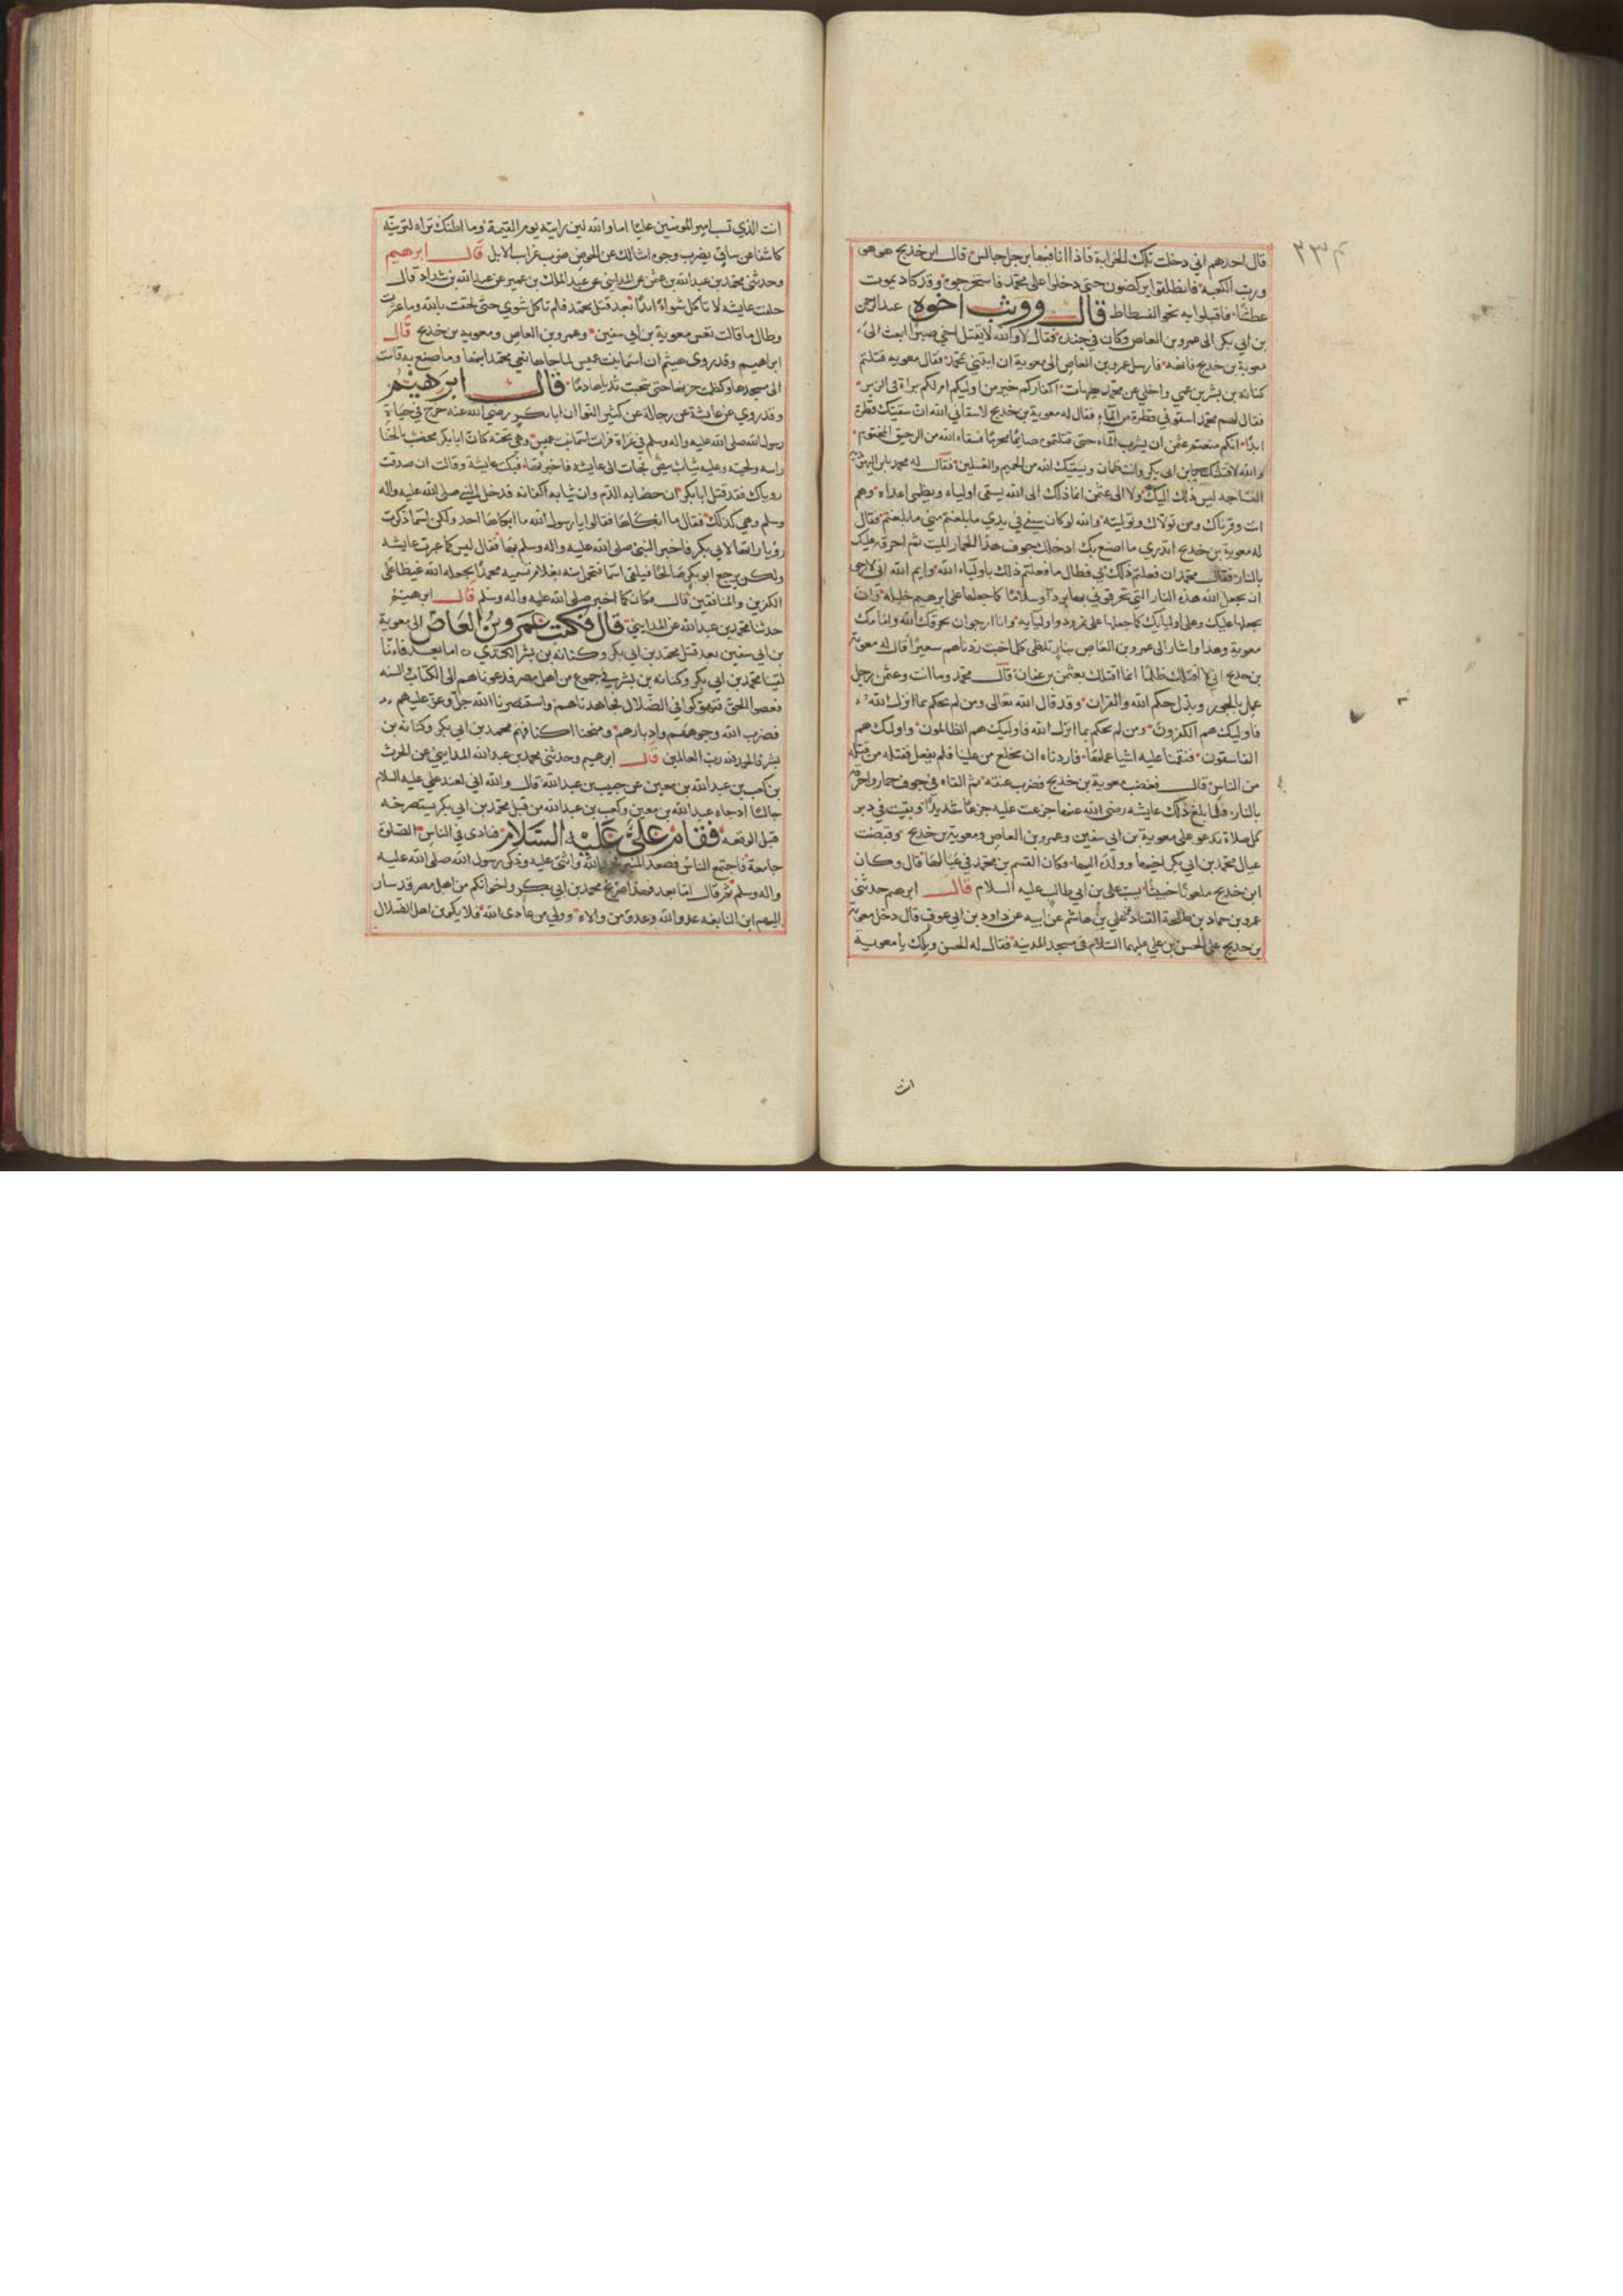 ٢٣٣
قال احدهم اني دخلت تلك الخرابة فاذا انا فيها برجل جالس قال ابن خديج هو هو
ورب الكعبة فانطلقوا يركضون حتى دخلوا على محمد فاستخرجوه وقد كاد يموت
عطشا فاقبلوا به نحو الفسطاط قال ووثب اخوه عبدالرحمن
بن ابي بكر الى عمرو بن العاص وكان في جنده فقال لا والله لا يقتل اخي صبرا ابعث الى
معوية بن خديج فانهه فارسل عمرو بن العاص الى معوية ان ايتني بمحمد فقال معويه قتلتم
كنانه بن بشر بن عمي واخلي عن محمد هيهات اكفاركم خير من اوليكم ام لكم براة في الزبر
فقال لهم محمد اسقوني قطرة من الماء فقال له معوية بن خديج لا سقاني الله ان سقيتك قطرة
ابدا انكم منعتم عثمن ان يشرب الماء حتى قتلتموه صايما محرما فسقاه الله من الرحيق المختوم
والله لاقتلنك يابن ابي بكر وانت ظمان ويسقيك الله من الحميم والغسلين فقال له محمد يابن اليهوديه
النساجه ليس ذلك اليك ولا الى عثمن انما ذلك الى الله يسقي اولياءه ويظمي اعداءه وهم
انت وقرناك ومن تولاك وتوليته والله لو كان سيفي في يدي ما بلغتم مني ما بلغتم فقال
له معوية بن خديج اتدري ما اصنع بك ادخلك جوف هذا الحمار الميت ثم احرقه عليك
بالنار فقال محمد ان فعلتم ذلك بي فطال ما فعلتم ذلك باولياء الله وايم الله اني لارجو
ان يجعل الله هذه النار التي تحرقوني بها بردا وسلاما كما جعلها على ابرهيم خليله وان
يجعلها عليك وعلى اوليايك كما جعلها على نمرود واوليايه وانا ارجو ان يحرقك الله وامامك
معوية وهذا واشار الى عمرو بن العاص بنار تلظى كلما خبت زدناهم سعيرا فقال له معوية
بن خديج اني لا اقتلك ظلما انما اقتلك بعثمن بن عفان قال محمد وما انت وعثمن رجل
عمل بالجور وبدل حكم الله والقران وقد قال الله تعالى ومن لم يحكم بما انزل الله
فاوليك هم الكفرون ومن لم يحكم بما انزل الله فاوليك هم الظالمون واولئك هم
الفاسقون فنقمنا عليه اشيا عملها فاردناه ان يخلع من علينا فلم يفعل فقتله من قتله
من الناس قال فغضب معوية بن خديج فضرب عنقه ثم القاه في جوف حمار واحرقه
بالنار فلما بلغ ذلك عايشه رضي الله عنها جزعت عليه جزعا شديدا وبقيت في دبر
كل صلاة تدعو على معوية بن ابي سفين وعمرو بن العاص ومعوية بن خديج وقبضت
عيال محمد بن ابي بكر اخيها وولده اليها وكان القسم بن محمد في عيالها قال وكان
ابن خديج ملعونا خبيثا يسب علي بن ابي طالب عليه السلام قال ابرهيم حدثني
عمرو بن حماد بن طلحة القناد عن علي بن هاشم عن ابيه عن داود بن ابي عوف قال دخل معوية
بن خديج على الحسن بن علي عليهما السلام في مسجد المدينة فقال له الحسن ويلك يا معوية
انت
انت الذي تسب امير المومنين عليا اما والله لين رايته يوم القيمة وما اظنك تراه لترينه
كاشفا عن ساق يضرب وجوه امثالك عن الحوض ضرب غرايب الابل قال ابرهيم
وحدثني محمد بن عبدالله بن عثمن عن المدايني عن عبد الملك بن عمير عن عبدالله بن شداد قال
حلفت عايشه لا تاكل شواء ابدا بعد قتل محمد فلم تاكل شوي حتى لحقت بالله وما عثرت
وطال ما قالت تعس معوية بن ابي سفين وعمرو بن العاص ومعوية بن خديج قال
ابراهيم وقد روى هيثم ان اسما بنت عميس لما جاها نعي محمد ابنها وما صنع به قامت
الى مسجدها وكظمت حزنها حتى شخبت ثدياها دما قال ابرهيم
وقد روي عن عايشة عن رجاله عن كثير النوا ان ابا بكر رضي الله عنه خرج في حياة
رسول الله صلى الله عليه واله وسلم في غزاة فرات اسما بنت عميس وهي تحته كان ابا بكر مخضب بالحنا
راسه ولحيته وعليه ثياب بيض فجات الى عايشه فاخبرتها فبكت عايشة وقالت ان صدقت
روياك فقد قتل ابا بكر ان خضابه الدم وان ثيابه اكفانه فدخل النبي صلى الله عليه واله
وسلم وهي كذلك فقال ما ابكاها فقالوا يارسول الله ما ابكاها احد ولكن اسما ذكرت
رؤيا راتها لابي بكر فاخبر النبي صلى الله عليه واله وسلم بها فقال ليس كما عبرت عايشه
ولكن يرجع ابو بكر صالحا فيلقى اسما فتحمل منه بغلام تسميه محمدا يجعله الله غيظا على
الكفرين والمنافقين قال فكان كما اخبر صلى الله عليه واله وسلم قال ابرهيم
حدثنا محمد بن عبدالله عن المدايني قال فكتب عمرو بن العاص الى معوية
بن ابي سفين بعد قتل محمد بن ابي بكر وكنانه بن بشر الكندي اما بعد فانا
لقينا محمد بن ابي بكر وكنانه بن بشر في جموع من اهل مصر فدعوناهم الى الكتاب والسنه
فعصوا الحق فتهوكوا في الضلال فجاهدناهم واستنصرنا الله جل وعز عليهم
فضرب الله وجوههم وادبارهم ومنحنا اكتافهم محمد بن ابي بكر وكنانة بن
بشر والحمد لله رب العالمين قال ابرهيم وحدثني محمد بن عبدالله المدايني عن الحرث
بن كعب بن عبدالله بن معين عن حبيب بن عبدالله قال والله اني لعند علي عليه السلام
جالسا اذ جاءه عبدالله بن معين وكعب بن عبدالله من قبل محمد بن ابي بكر يستصرخه
قبل الوقعه فقام علي عليه السلام فنادى في الناس الصلوة
جامعة فاجتمع الناس فصعد المنبر فحمد الله واثنى عليه وذكر رسول الله صلى الله عليه
واله وسلم ثم قال اما بعد فهذا صريخ محمد بن ابي بكر واخوانكم من اهل مصر قد سار
اليهم ابن النابغه عدو الله وعدو من والاه وولي من عادى الله فلا يكون اهل الضلال